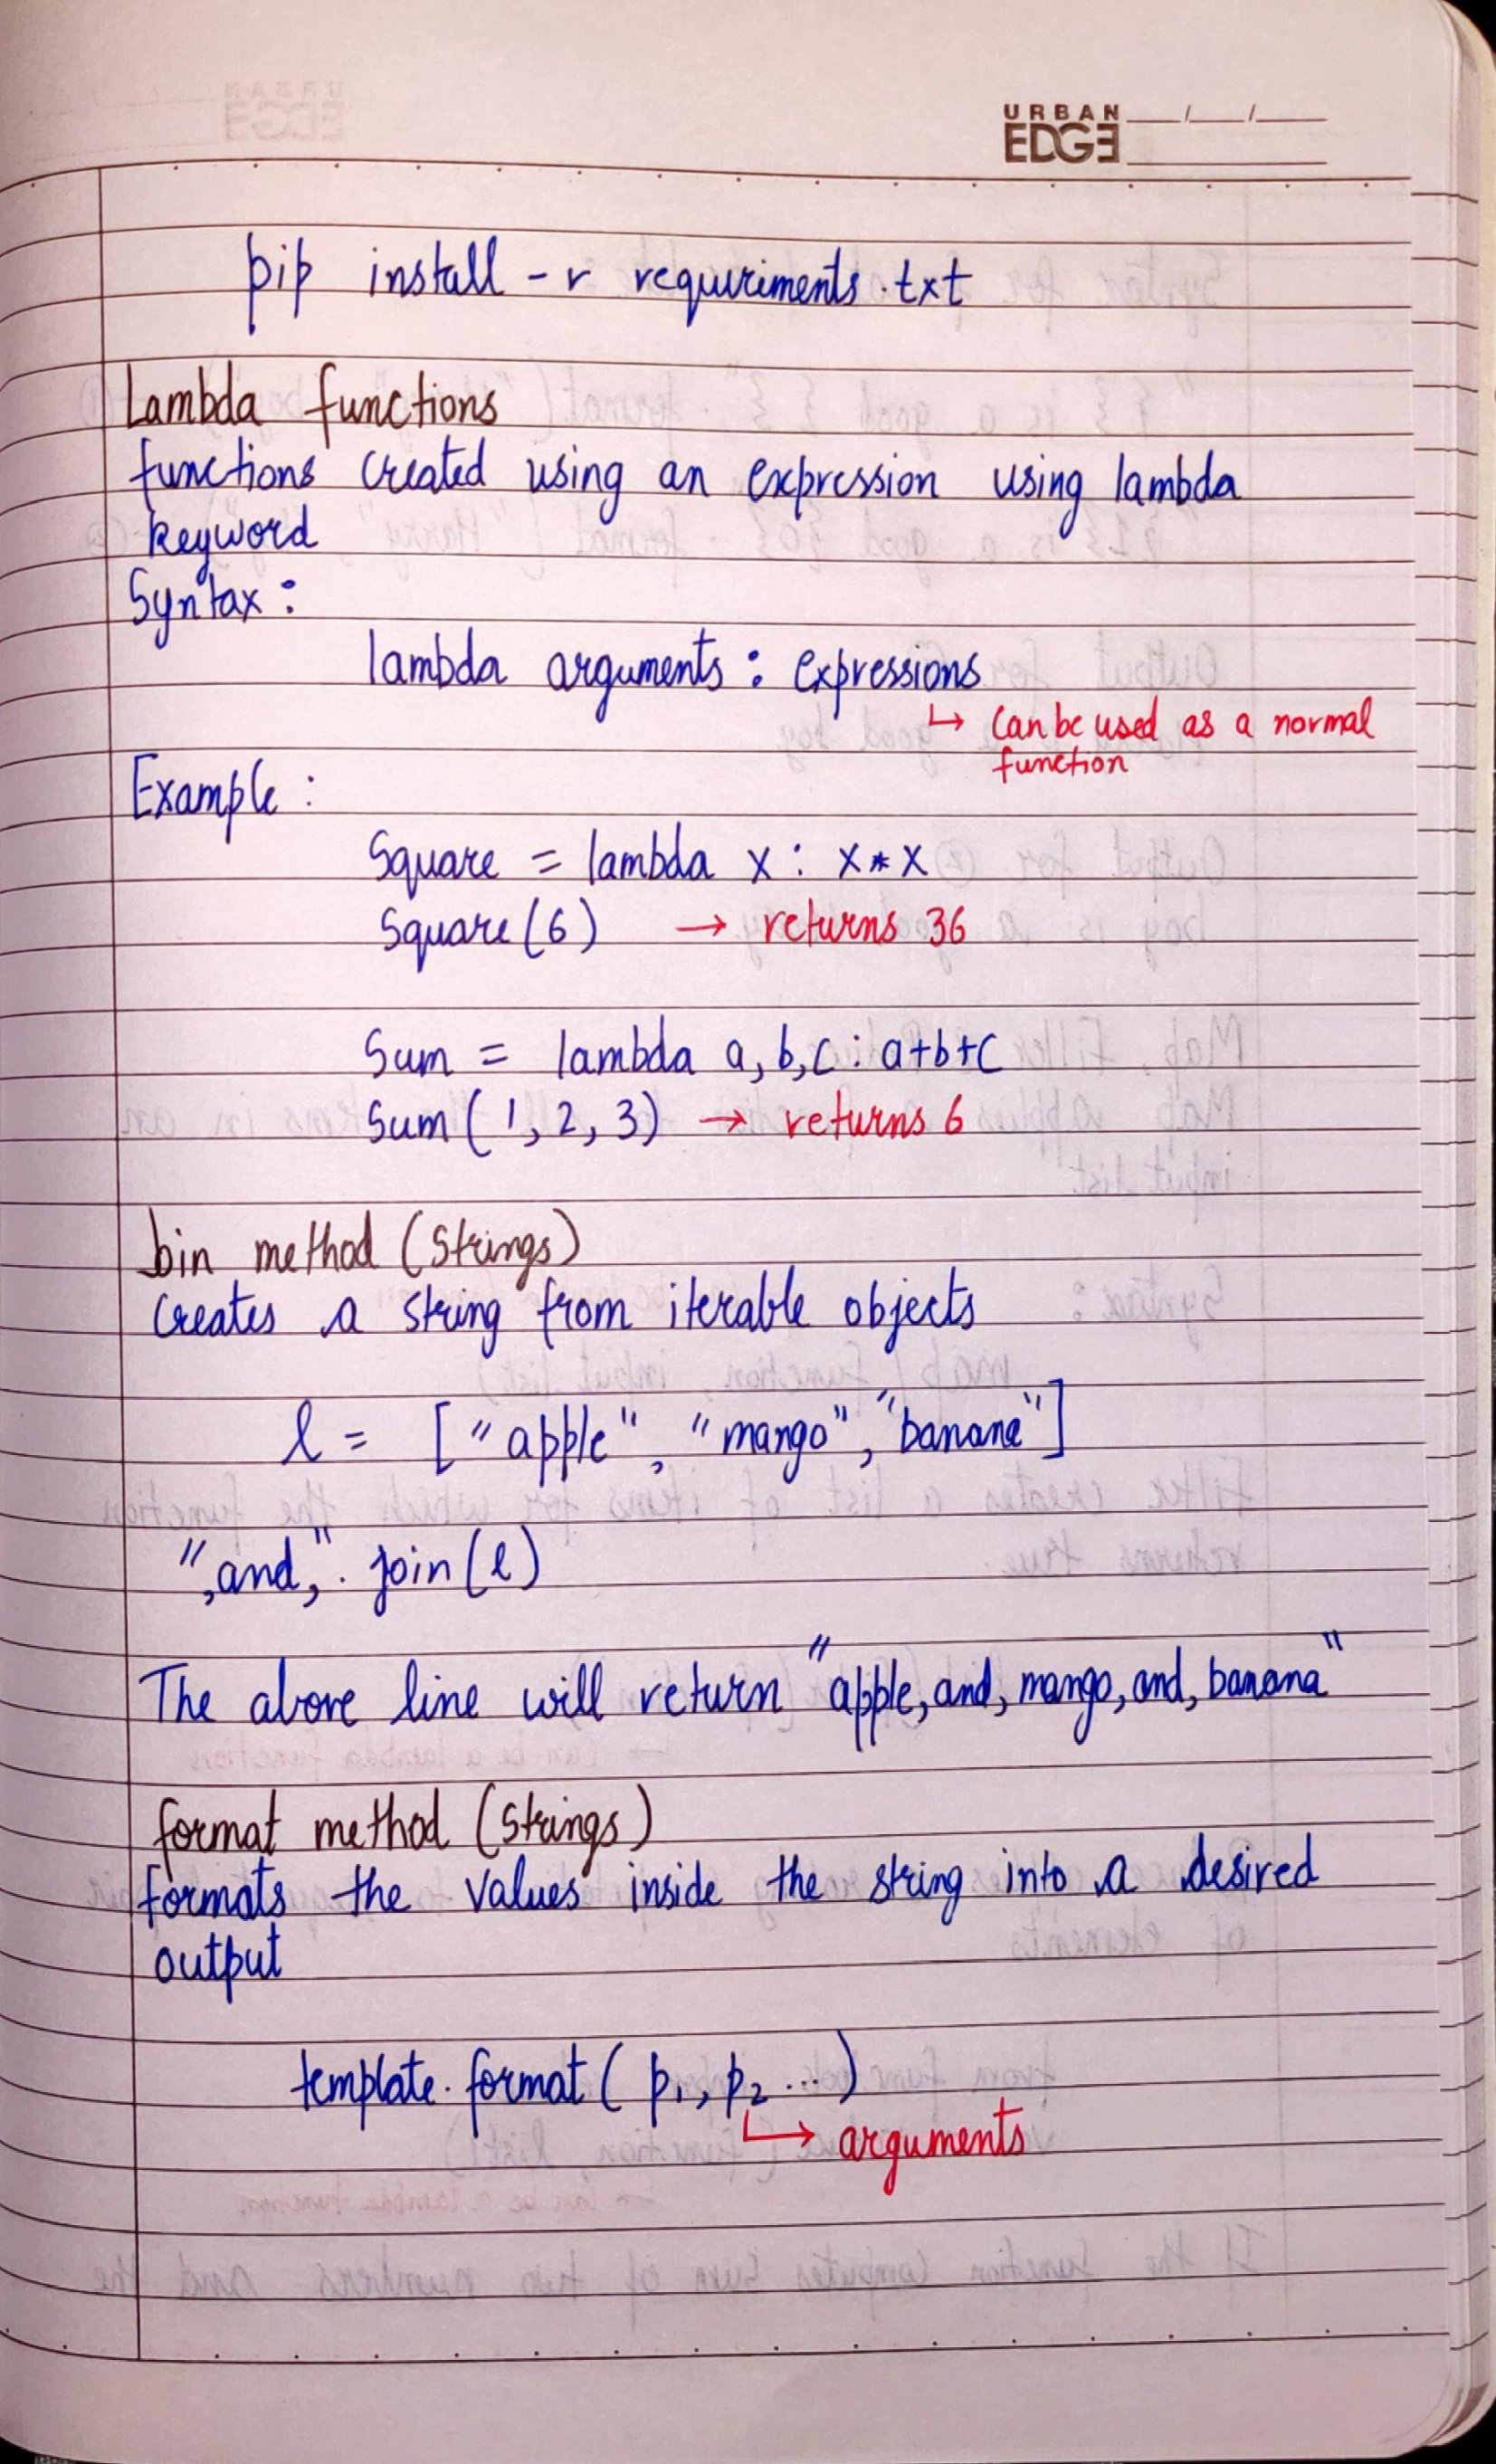 URBAN
EDGE
pip install -r requriments.txt
Lambda functions
functions created using an expression using lambda
keyword
Syntax :
lambda arguments : expressions
↳ Can be used as a normal
function
Example :
Square = lambda x : x * x
Square (6) → returns 36
Sum = lambda a, b, c : a+b+c
Sum ( 1, 2, 3) → returns 6
Join method (Strings)
Creates a string from iterable objects
l = [ "apple", "mango", "banana" ]
",and,". join (l)
The above line will return "apple,and, mango, and, banana"
format method (Strings)
formats the values inside the string into a desired
output
template. format ( p1, p2 ... )
↳ arguments